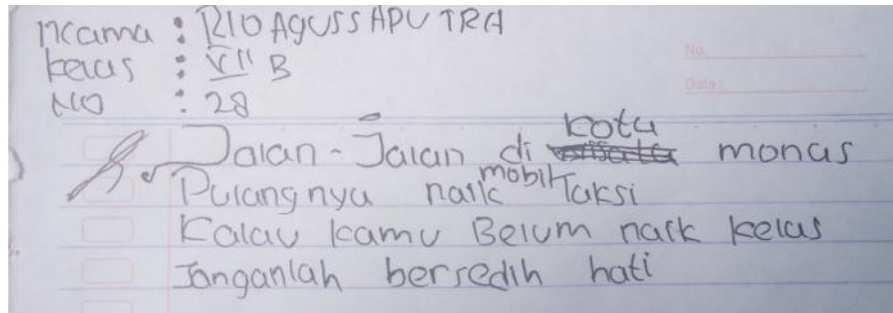 Nama : RIO AGUS SAPUTRA
Kelas : VII B
NO : 28
No.
Date :
Jalan-Jalan di kota monas
Pulangnya naik mobil Taksi
Kalau kamu Belum naik kelas
Janganlah bersedih hati